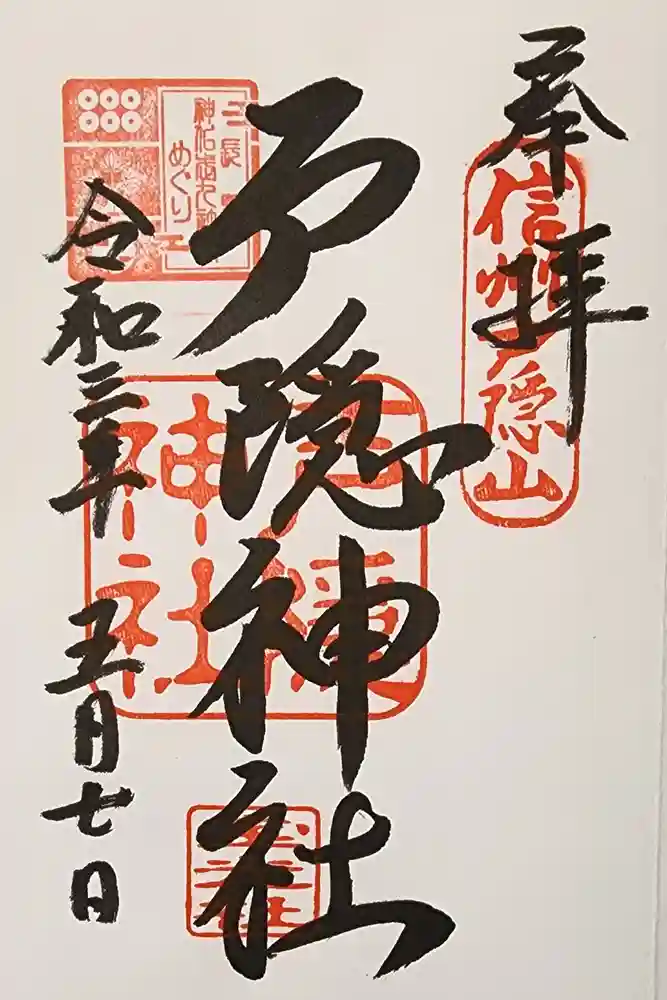 奉拝
信州戸隠山
戸隠神社
戸隠
神社
神仏
めぐり
令和三年
五月七日